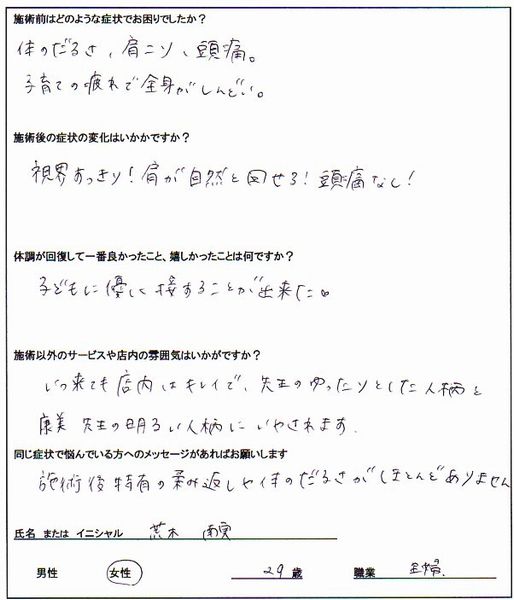 施術前はどのような症状でお困りでしたか？
体のだるさ、肩こり、頭痛。
子育ての疲れで全身がしんどい。
施術後の症状の変化はいかかですか？
視界すっきり！肩が自然と回せる！頭痛なし！
体調が回復して一番良かったこと、嬉しかったことは何ですか？
子どもに優しく接することが出来た。
施術以外のサービスや店内の雰囲気はいかがですか？
いつ来ても店内はキレイで、先生のゆったりとした人柄と
康美先生の明るい人柄にいやされます。
同じ症状で悩んでいる方へのメッセージがあればお願いします
施術後特有の揉み返しや体のだるさがほとんどありません
氏名 または イニシャル 荒木
男性 女性 29 歳 職業 主婦